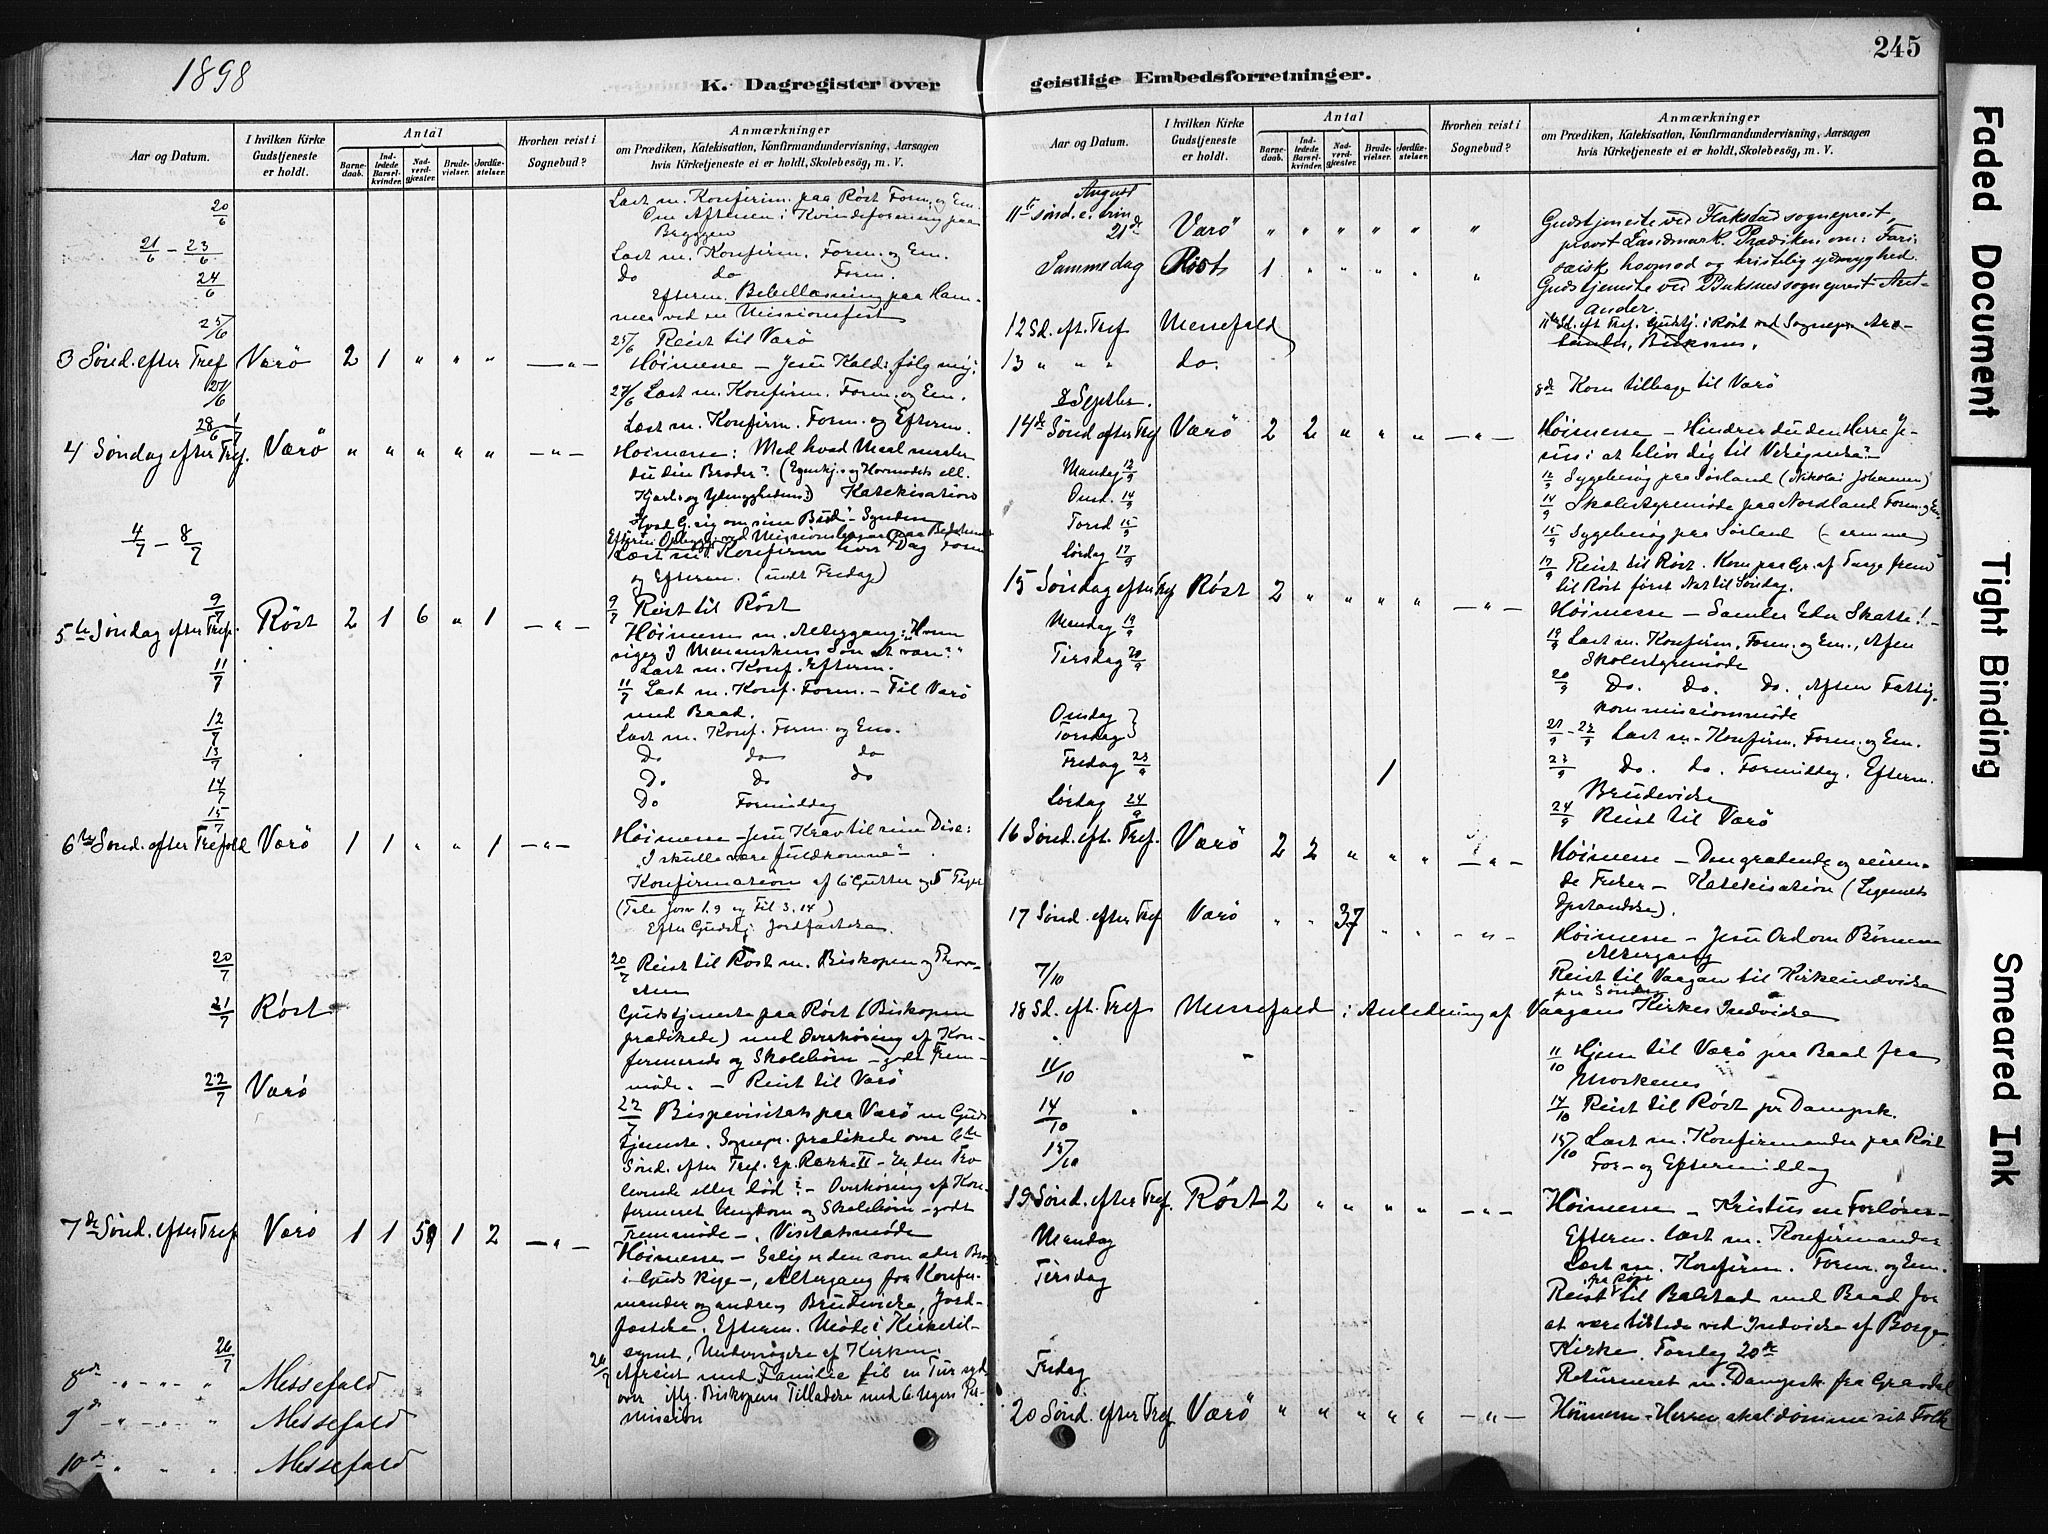 1898
K. Dagregister over
Aar og Datum.
I hvilken Kirke Gudstjeneste er holdt.
Antal
Barnedaab.
Indledede Barselkvinder.
Nadverdgjæster.
Brudevielser.
Jordfæstelser.
Hvorhen reist i Sognebud?
Anmærkninger
om Prædiken, Katekisation, Konfirmandundervisning, Aarsagen
hvis Kirketjeneste ei er holdt, Skolebesøg, m. V.
20/6 Læst m. Konfirm. paa Røst Form. og Em.
Om Aftenen i Kvindeforening paa
Bryggen
21/6 - 23/6 Læst m. Konfirm. Form. og Em.
24/6 Do do Form.
Efterm. Bibellæsning paa Ham-
nær ved en Missionsfest
25/6 25/6 Reist til Værø
3 Sønd. efter Tref Værø 2 1 " " " — " — Høimesse — Jesu Kald: følg mig.
27/6 27/6 Læst m. Konfirm. Form. og Em.
28/6 1/7 Læst m. Konfirm. Form. og Efterm.
4 Søndag efter Tref. Værø " " " " " — " — Høimesse: Med hvad Maal maaler
du din Broder? (Egenkj. og Hovmodets ell.
Kjærl. og Ydmyghedens) Katekisation
Hvad G. sig om sine Bud - Synden
4/7 - 8/7 Læst m. Konfirm hver Dag Form
og Efterm. (undt Fredag)
9/7 9/7 Reist til Røst
5te Søndag efter Tref. Røst 2 1 6 " 1 — " — Høimesse m. Altergang: Hvem
siger I Menneskens Søn at være?"
Læst m. Konf. Efterm.
11/7 11/7 Læst m. Konf. Form. — Til Værø
med Baad.
12/7 Læst m. Konf. Form. og Em.
13/7 Do do do
14/7 Do Do do
15/7 Do Formiddag
6te Sønd. efter Trefold Værø 1 1 " " 1 — " — Høimesse — Jesu Krav til sine Disc:
"I skulle være fuldkomne" —
Konfirmation af 6 Gutter og 5 Piger
(Tale Josv 1.9 og Fil 3.14)
Efter Gudstj. Jordfæstelse.
20/7 20/7 Reist til Røst m. Biskopen og Prov-
sten
21/7 Røst Gudstjeneste paa Røst (Biskopen
prædikede) med Overhøring af Kon-
firmerede og Skolebørn — godt Frem-
møde. — Reist til Værø
22/7 Værø 22/7 Bispevisitats paa Værø m Guds
tjeneste. Sognepr. prædikede over 6te
Sønd. efter Tref. Ep. Række II — Er den Tro
levende eller død? — Overhøring af Kon-
firmeret Ungdom og Skolebørn — godt
Fremmøde —. Visitatsmøde
7de Sønd. efter Tref Værø 1 1 59 1 2 — " — Høimesse — Salig er den som æder Brød
i Guds Rige —, Altergang for Konfir-
mander og andre, Brudevielse, Jord-
fæstelse. Efterm. Møde i Kirketil-
synet, Undersøgelse af Kirken.
26/7 26/7 Afreist med Familie til en Tur syd
8de " " " Messefald over iflg. Biskopens Tilladelse med 6 Ugers Per-
9de " " " Messefald mission
10de " " " Messefald
245
geistlige Embedsforretninger.
Aar og Datum.
I hvilken Kirke Gudstjeneste er holdt.
Antal
Barnedaab.
Indledede Barselkvinder.
Nadverdgjæster.
Brudevielser.
Jordfæstelser.
Hvorhen reist i Sognebud?
Anmærkninger
om Prædiken, Katekisation, Konfirmandundervisning, Aarsagen
hvis Kirketjeneste ei er holdt, Skolebesøg, m. V.
August
11te Sønd. e. Trin
21de Værø " " " " " " Gudstjeneste ved Flakstad sogneprest,
provst Landmark. Prædiken om: Fari-
sæisk hovmod og kristelig ydmyghed.
Samme dag Røst 1 " " " " " Gudstjeneste ved Buksnes sogneprest Aut-
ander.
12 Sd. eft. Tref Messefald
13 " " " do.
8 Septbr. 8de Kom tilbage til Værø
14de Sønd efter Tref Værø 2 2 " " " — " — Høimesse — Hindrer du den Herre Je-
sus i at blive dig til Velsignelse?
Mandag 12/9 12/9 Sygebesøg paa Sørland (Nikolai Johansen)
Onsd. 14/9 14/9 Skolestyremøde paa Nordland Form. og Em.
Torsd 15/9 15/9 Sygebesøg paa Sørland (samme)
Lørdag 17/9 17/9 Reist til Røst. Kom paa Gr. af Taage frem
til Røst først Nat til Søndag.
15 Søndag efter Tref Røst 2 " " " " — " — Høimesse — Samler Eder Skatte! —
Mandag 19/9 19/9 Læst m. Konfirm. Form. og Em., Aften
Skolestyremøde
Tirsdag 20/9 20/9 Do. Do. Do. Aften Fattig-
kommissionsmøde
Onsdag
Torsdag 21/9 - 22/9 Læst m. Konfirm. Form. og Em.
Fredag 23/9 1 23/9 Do. do. Formiddag. Efterm.
Brudevielse
Lørdag 24/9 24/9 Reist til Værø
16 Sønd. eft. Tref. Værø 2 2 " " " — " — Høimesse — Den grædende og seiren-
de Frelser — Katekisation (Legemets
Opstandelse).
17 Sønd. efter Tref Værø " " 37 " " — " — Høimesse — Jesu Ord om Børnene
Altergang
7/10 Reist til Vaagan til Kirkeindvielse
paa Søndag
18 Sd. eft. Tref Messefald i Anledning af Vaagans Kirkes Indvielse
11/10 11/10 Hjem til Værø paa Baad fra
Moskenes
14/10 14/10 Reist til Røst pr Dampsk.
15/10 15/10 Læst m. Konfirmander paa Røst
For- og Eftermiddag
19 Sønd. efter Tref. Røst 2 " " " " — " — Høimesse — Kristus en Forløser —
Efterm. læst m. Konfirmander
Mandag Læst m. Konfirm. Form. og Em.
Tirsdag Reist fra Røst til Balstad med Baad for
at være tilstede ved Indvielse af Borge
Kirke. Torsdag 20de
Fredag Returneret m. Dampsk. fra Gravdal
20 Sønd. efter Tref Værø " " " " " — " — Høimesse — Herren skal dømme sit Folk
Faded Document
Tight Binding
Smeared Ink